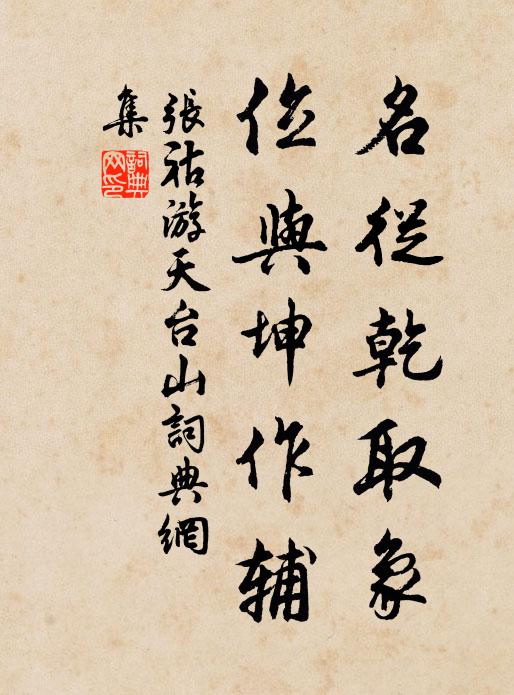 名從乾取象
位與坤作輔
張祜游天台山詞典網
集
詞典
网印